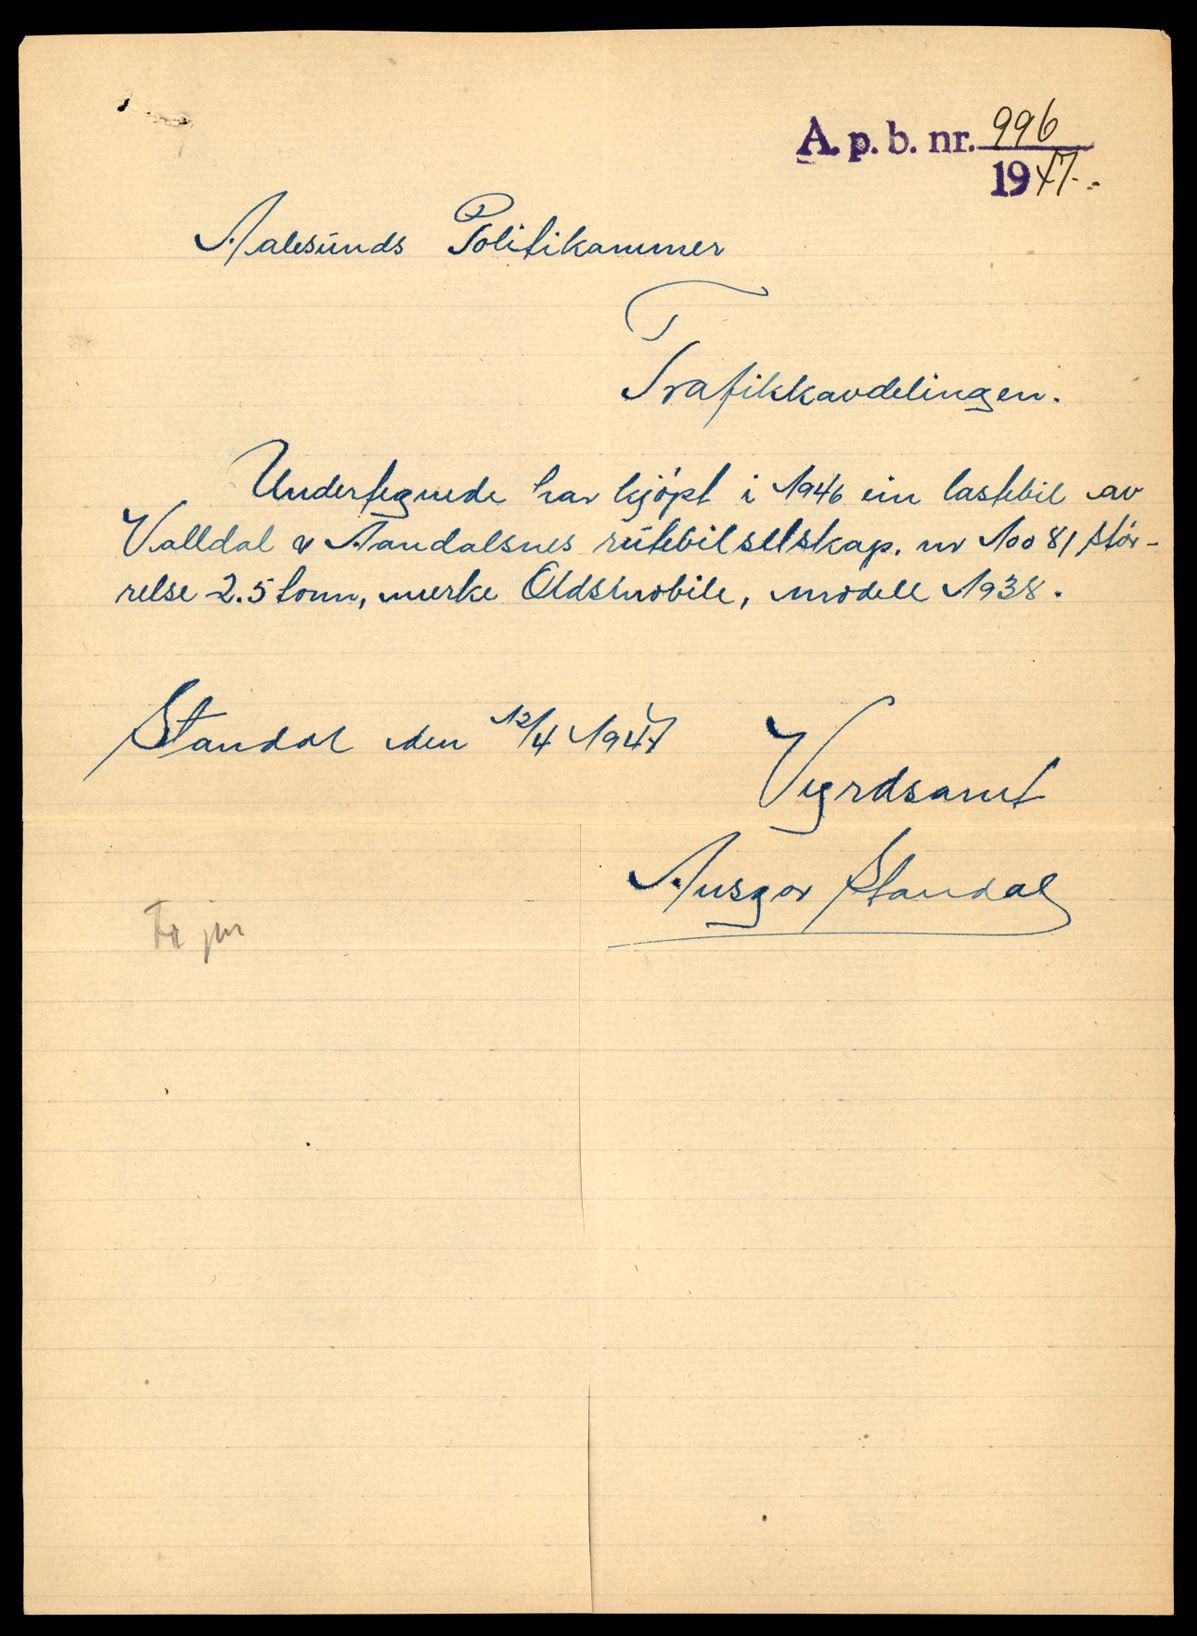 A. p. b. nr. 996
1947.
Aalesunds Politikammer
Trafikkavdelingen.
Undertegnede har kjöpt i 1946 ein lastebil av
Valldal & Aandalsnes rutebilselskap. nr 10081 stör-
relse 2.5 tonn, merke Oldsmobile, modell 1938.
Standal den 12/4 1947
Vyrdsamt
Ansgar Standal